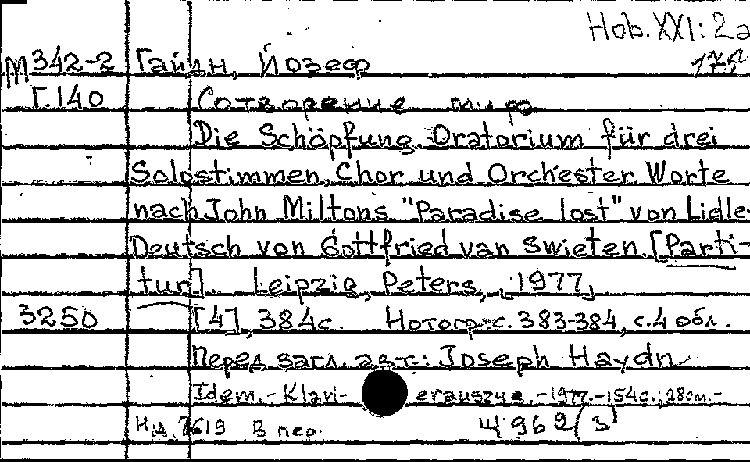 Hob. XXI: 2a
М342-2 Гайдн, Йозеф
Г.140 Сотворение мира
Die Schöpfung. Oratorium für drei
Solostimmen, Chor und Orchester. Worte
nach John Miltons "Paradise lost" von Lidle-
Deutsch von Gottfried van Swieten. [Parti-
tur]. Leipzig, Peters, [1977]
3250 [4], 384с. Нотогр.: с. 383-384, с. 4 обл.
Перед загл. авт.: Joseph Haydn
Idem. - Klavi- erauszug. - 1977. - 154с.; 28см. -
7619 В пер. 4962(3)